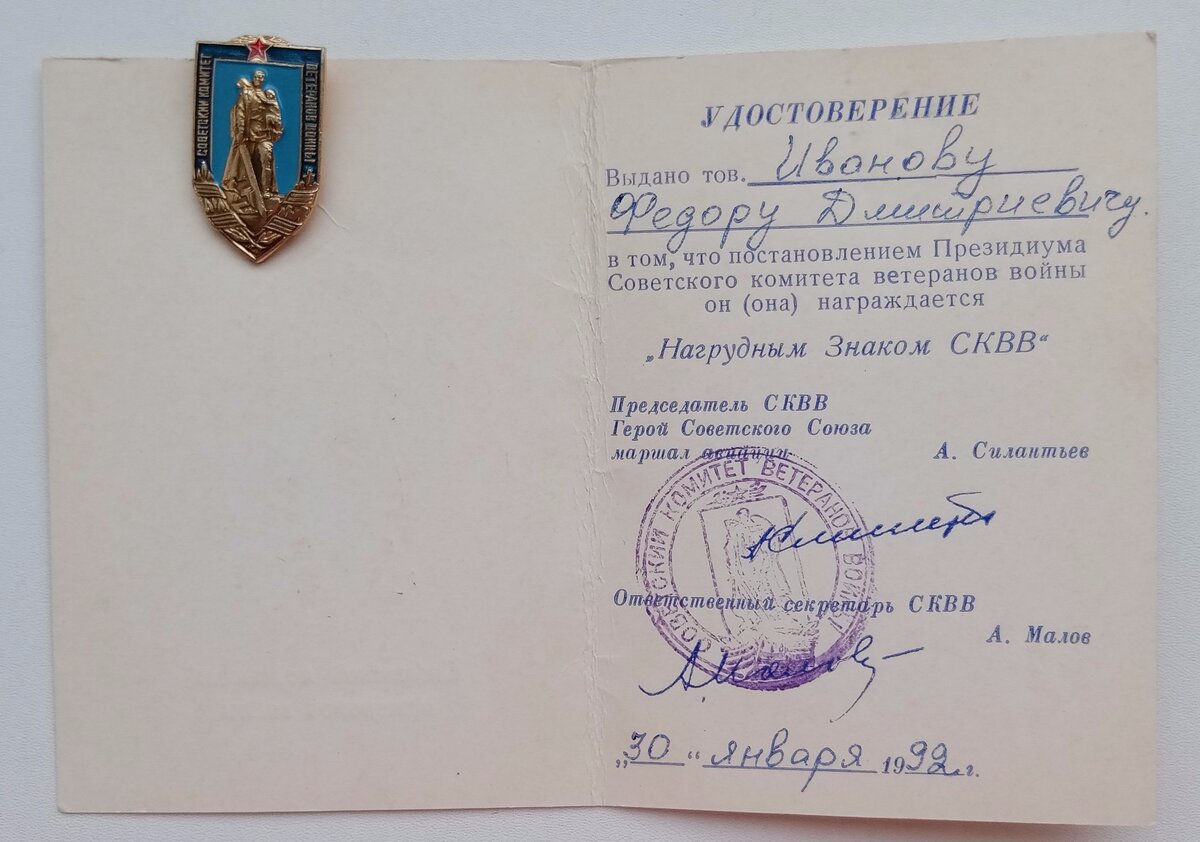 СОВЕТСКИЙ КОМИТЕТ
ВЕТЕРАНОВ ВОЙНЫ
УДОСТОВЕРЕНИЕ
Выдано тов. Иванову
Федору Дмитриевичу.
в том, что постановлением Президиума
Советского комитета ветеранов войны
он (она) награждается
„Нагрудным Знаком СКВВ“
Председатель СКВВ
Герой Советского Союза
маршал авиации А. Силантьев
СОВЕТСКИЙ КОМИТЕТ ВЕТЕРАНОВ ВОЙНЫ
Ответственный секретарь СКВВ
А. Малов
„30“ января 1992 г.